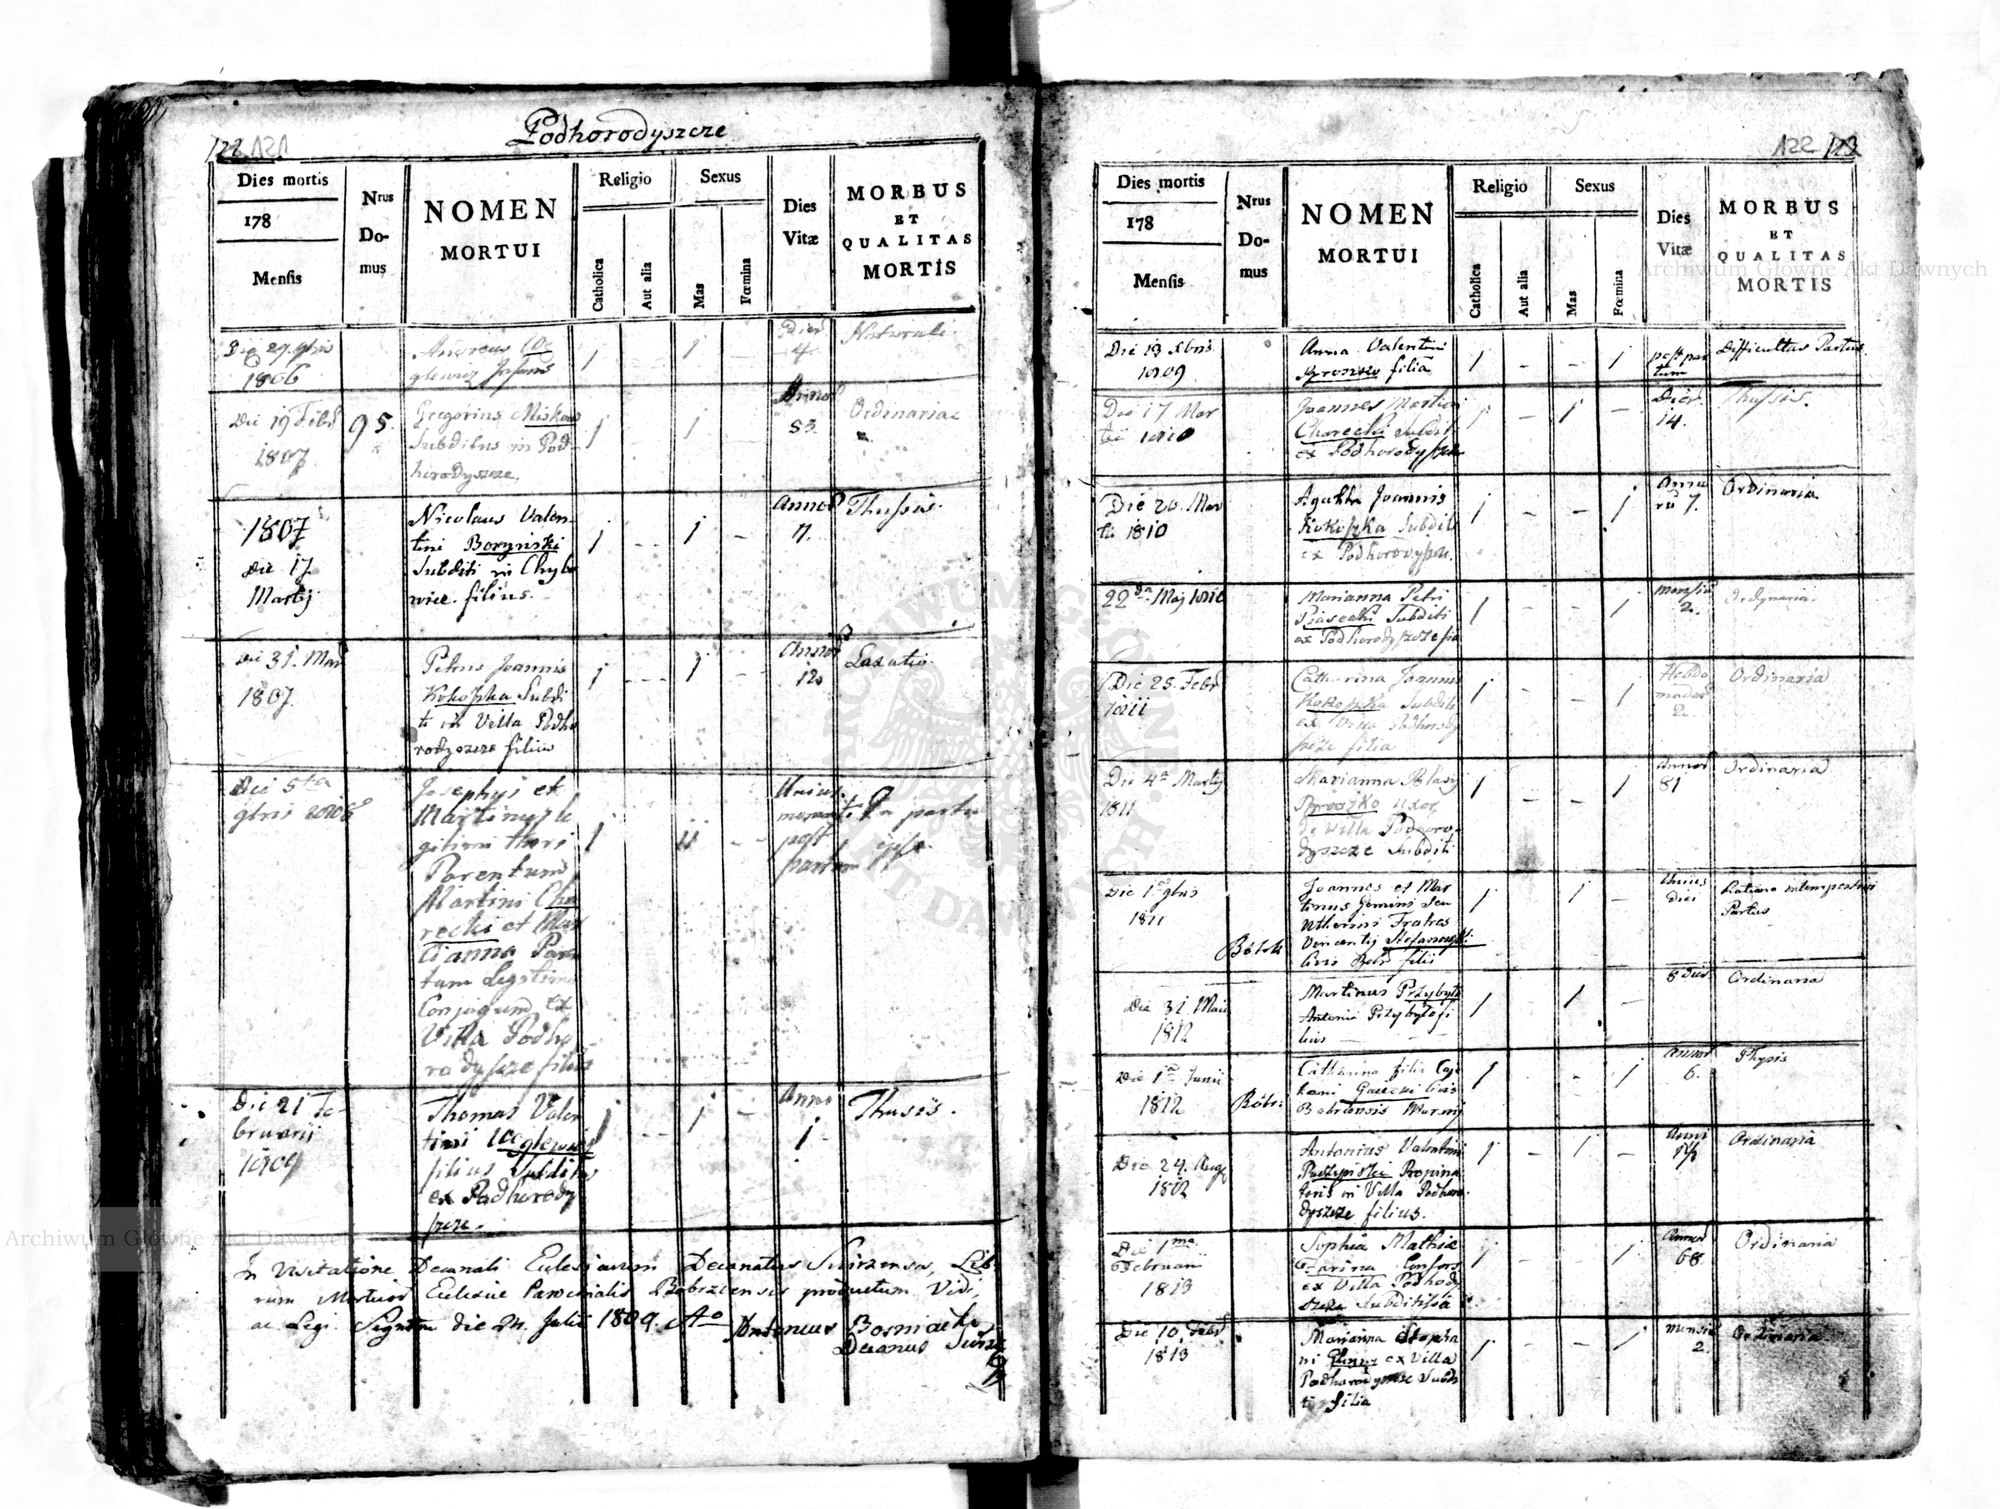 Podhorodyszcze
122 121
Dies mortis
178
Mensis
Nrus Do-
mus
NOMEN
MORTUI
Religio
Catholica
Aut alia
Sexus
Mas
Fœmina
Dies
Vitæ
MORBUS
ET
QUALITAS
MORTIS
Die 29. 9bris
1806
Andreas
Infans
1 - 1 -
Dier
4.
Naturali
Die 19 Febr
1807
95.
Gregorius Miskow
Subditus in Pod-
horodyszcze.
1 - 1 -
Annor
53.
Ordinaria
1807
Die 17
Martij
Nicolaus Valen-
tini Boryński
Subditi in Chyle
wice filius.
1 - 1 -
Annor
Thussis.
Die 31. Mar
1807.
Petrus Joannis
Kokoszka Subdi
ti in Villa Podho
rodyszcze filius
1 - 1 -
Annor
12
Laxatio.
Die 5ta
9bris
Josephus et
Martinus le
gitimi thori
Parentum
Martini Cha
recki et Mar
ianna Paren
tum Legitimo
Conjugum ex
Villa Podho
rodyszcze filii
1 - 11 -
Unius
moment
post
partum
in partu
ipso
Die 21 Fe-
bruarij
1809
Thomas Valen
tini
filius Subditus
ex Podhorody
szcze.
1 - 1 -
Anni
1
Thusis.
In Visitatione Decanali Ecclesiarum Decanatus Swirzensis, Lib-
rum Mortuor Ecclesiæ Parochialis Bobrzcensis productum Vidi,
ac Legi. Signatum die 24 Julii 1809 Ao
Antonius Bosniacki
Decanus
122 123
Dies mortis
178
Mensis
Nrus Do-
mus
NOMEN
MORTUI
Religio
Catholica
Aut alia
Sexus
Mas
Fœmina
Dies
Vitæ
MORBUS
ET
QUALITAS
MORTIS
Die 13 Xbris
1809
Anna Valentini
filia
1 - - 1
post par
tum
Difficultas Partus.
Die 17 Mar
tii 1810
Joannes Martini
Charecki Subditi
ex Podhorodyszcze
1 - 1 -
Dier.
14.
Thussis.
Die 20. Mar
tii 1810
Agatha Joannis
Kokoszka Subditi
ex Podhorodyszcze.
1 - - 1
Anno
ru 7.
Ordinaria
22da Maj 1810
Marianna Petri
Piasecki Subditi
ex Podhorodyszcze fia
1 - - 1
mensiu
2.
Ordynaria.
Die 25. Febr
1811
Catharina Joannis
Kokoszka Subditi
ex Villa Podhorody
szcze filia
1 - - 1
Hebdo
madar
2.
Ordinaria
Die 4a Martij
1811
Marianna Blasij
Uxor
de Villa Podhoro-
dyszcze Subditi
1 - - 1
Annor
81
Ordinaria
Die 1a 9bris
1811
Joannes et Mar
tinus Gemini seu
Utherini Fratres
Vincentij Stefanowski
Civis Bobr filii
1 - 1 -
Unius
diei
Ratione intempestivi
Partus
Die 31. Maii
1812
Martinus Przybyła
Antonii Przybyło fi
lius
1 - 1 -
8 dier
Ordinaria
Die 1a Junii
1812
Bobr:
Catharina filia Caje
tani Civis
Bobrcensis
1 - - 1
Annor
6.
Die 24. Aug
1812
Antonius Valentini
Propina
toris in Villa Podhoro-
dyszcze filius.
1 - 1 -
Anni
1½
Ordinaria
Die 1ma
Februarii
1813
Sophia Mathiæ
Consors
ex Villa Podhody
szcze
1 - - 1
Annor
68.
Ordinaria
Die 10. Febr
1813
Marianna Stepha
ni ex Villa
Podhorodyszcze Subdi
ti filia
1 - - 1
mensiu
2.
Ordinaria
Archiwum Główne Akt Dawnych
Archiwum Główne Akt Dawnych
ARCHIWUM GŁÓWNE AKT DAWNYCH